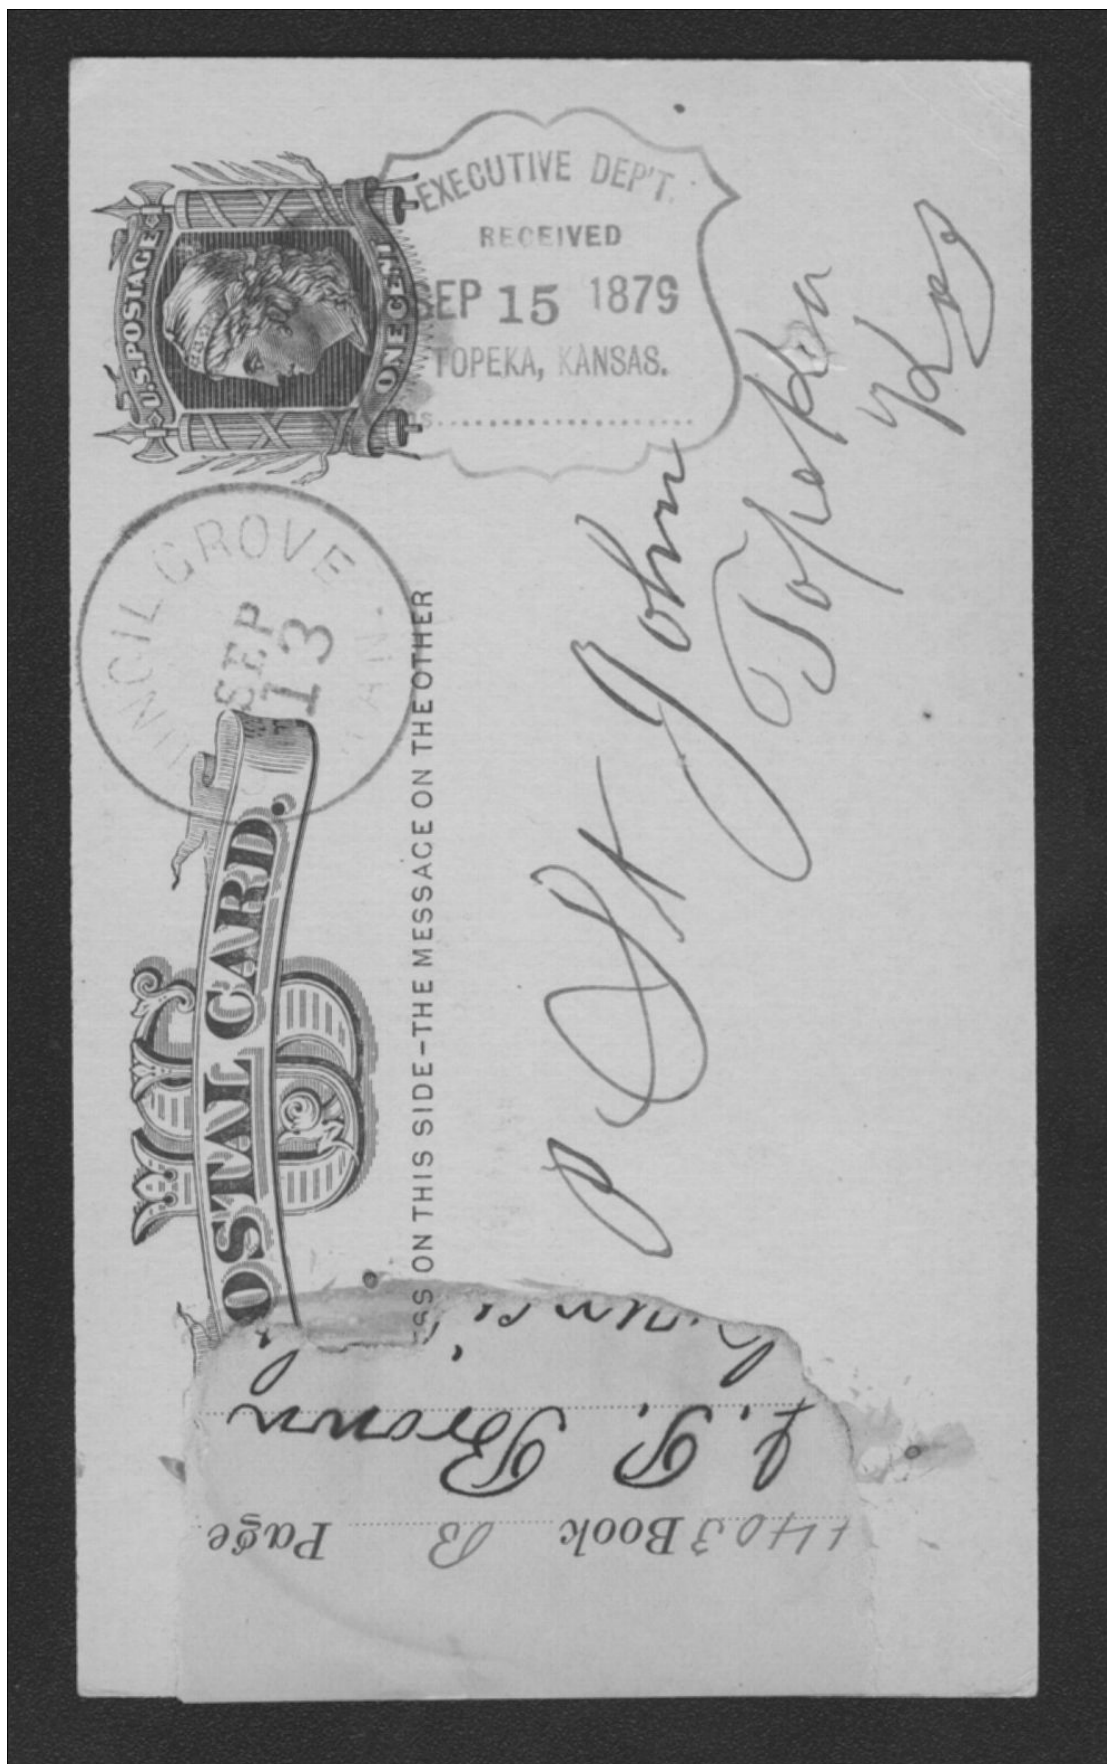 U.S. POSTAGE
ONE CENT
EXECUTIVE DEP'T.
RECEIVED
SEP 15 1879
TOPEKA, KANSAS.
NCIL GROVE
SEP
13
OSTAL CARD.
SS ON THIS SIDE-THE MESSAGE ON THE OTHER
St John
Topeka
Ks
1403 Book B Page
J. P. Brown